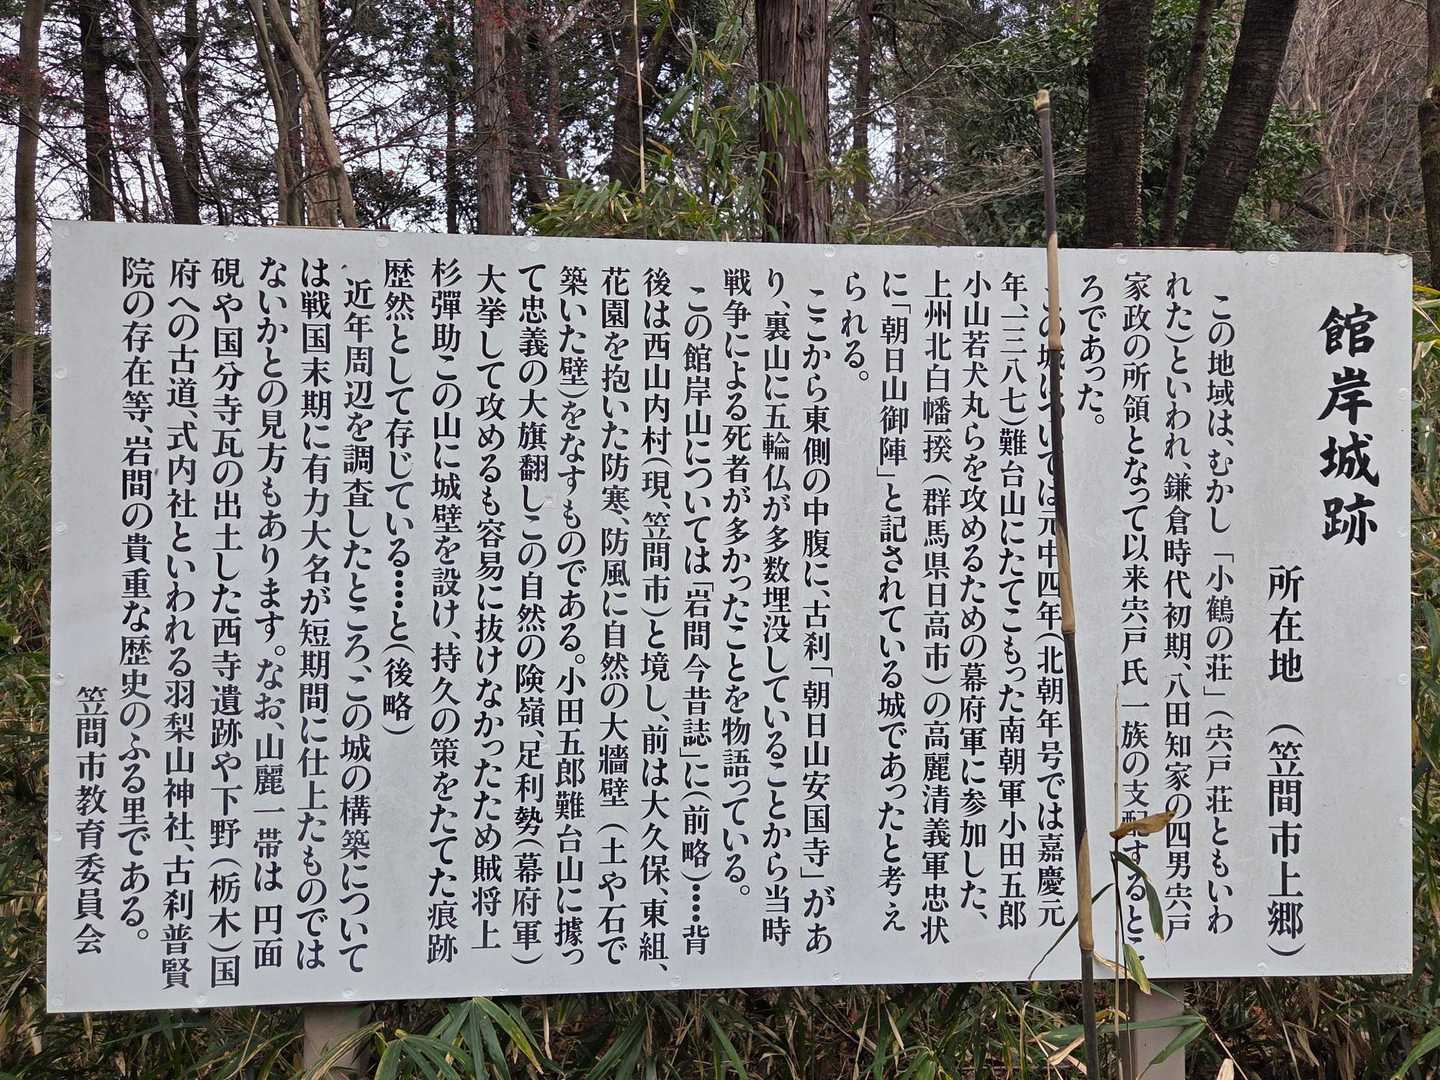 館岸城跡
所在地　（笠間市上郷）
この地域は、むかし「小鶴の荘」（宍戸荘ともいわ
れた）といわれ、鎌倉時代初期、八田知家の四男宍戸
家政の所領となって以来宍戸氏一族の支配するとこ
ろであった。
この城については元中四年（北朝年号では嘉慶元
年、一三八七）難台山にたてこもった南朝軍小田五郎
小山若犬丸らを攻めるための幕府軍に参加した、
上州北白幡一揆（群馬県日高市）の高麗清義軍忠状
に「朝日山御陣」と記されている城であったと考え
られる。
ここから東側の中腹に、古刹「朝日山安国寺」があ
り、裏山に五輪仏が多数埋没していることから当時
戦争による死者が多かったことを物語っている。
この館岸山については「岩間今昔誌」に（前略）……背
後は西山内村（現、笠間市）と境し、前は大久保、東組、
花園を抱いた防寒、防風に自然の大牆壁（土や石で
築いた壁）をなすものである。小田五郎難台山に據っ
て忠義の大旗翻しこの自然の険嶺、足利勢（幕府軍）
大挙して攻めるも容易に抜けなかったため賊将上
杉彈助この山に城壁を設け、持久の策をたてた痕跡
歴然として存じている……と（後略）
近年周辺を調査したところ、この城の構築について
は戦国末期に有力大名が短期間に仕上たものでは
ないかとの見方もあります。なお、山麗一帯は円面
硯や国分寺瓦の出土した西寺遺跡や下野（栃木）国
府への古道、式内社といわれる羽梨山神社、古刹普賢
院の存在等、岩間の貴重な歴史のふる里である。
笠間市教育委員会